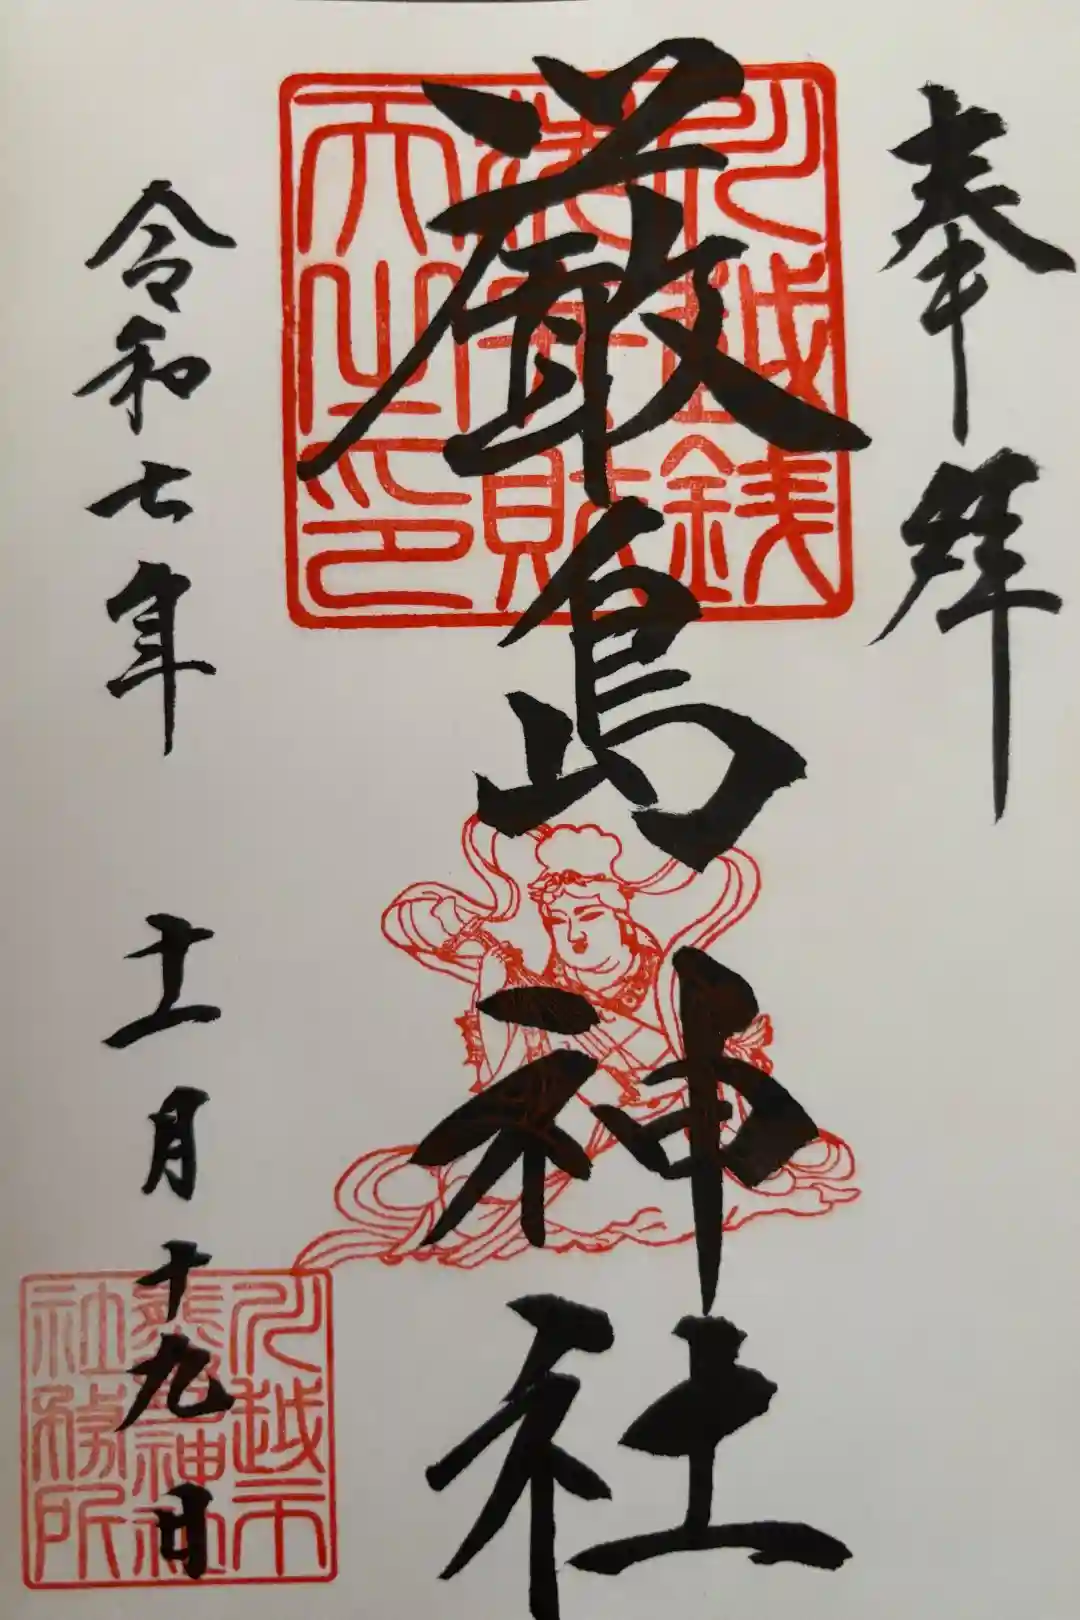 奉拜
厳島神社
令和七年 十一月十九日
川越銭
洗弁財
天之印
川越市
神社
社務所